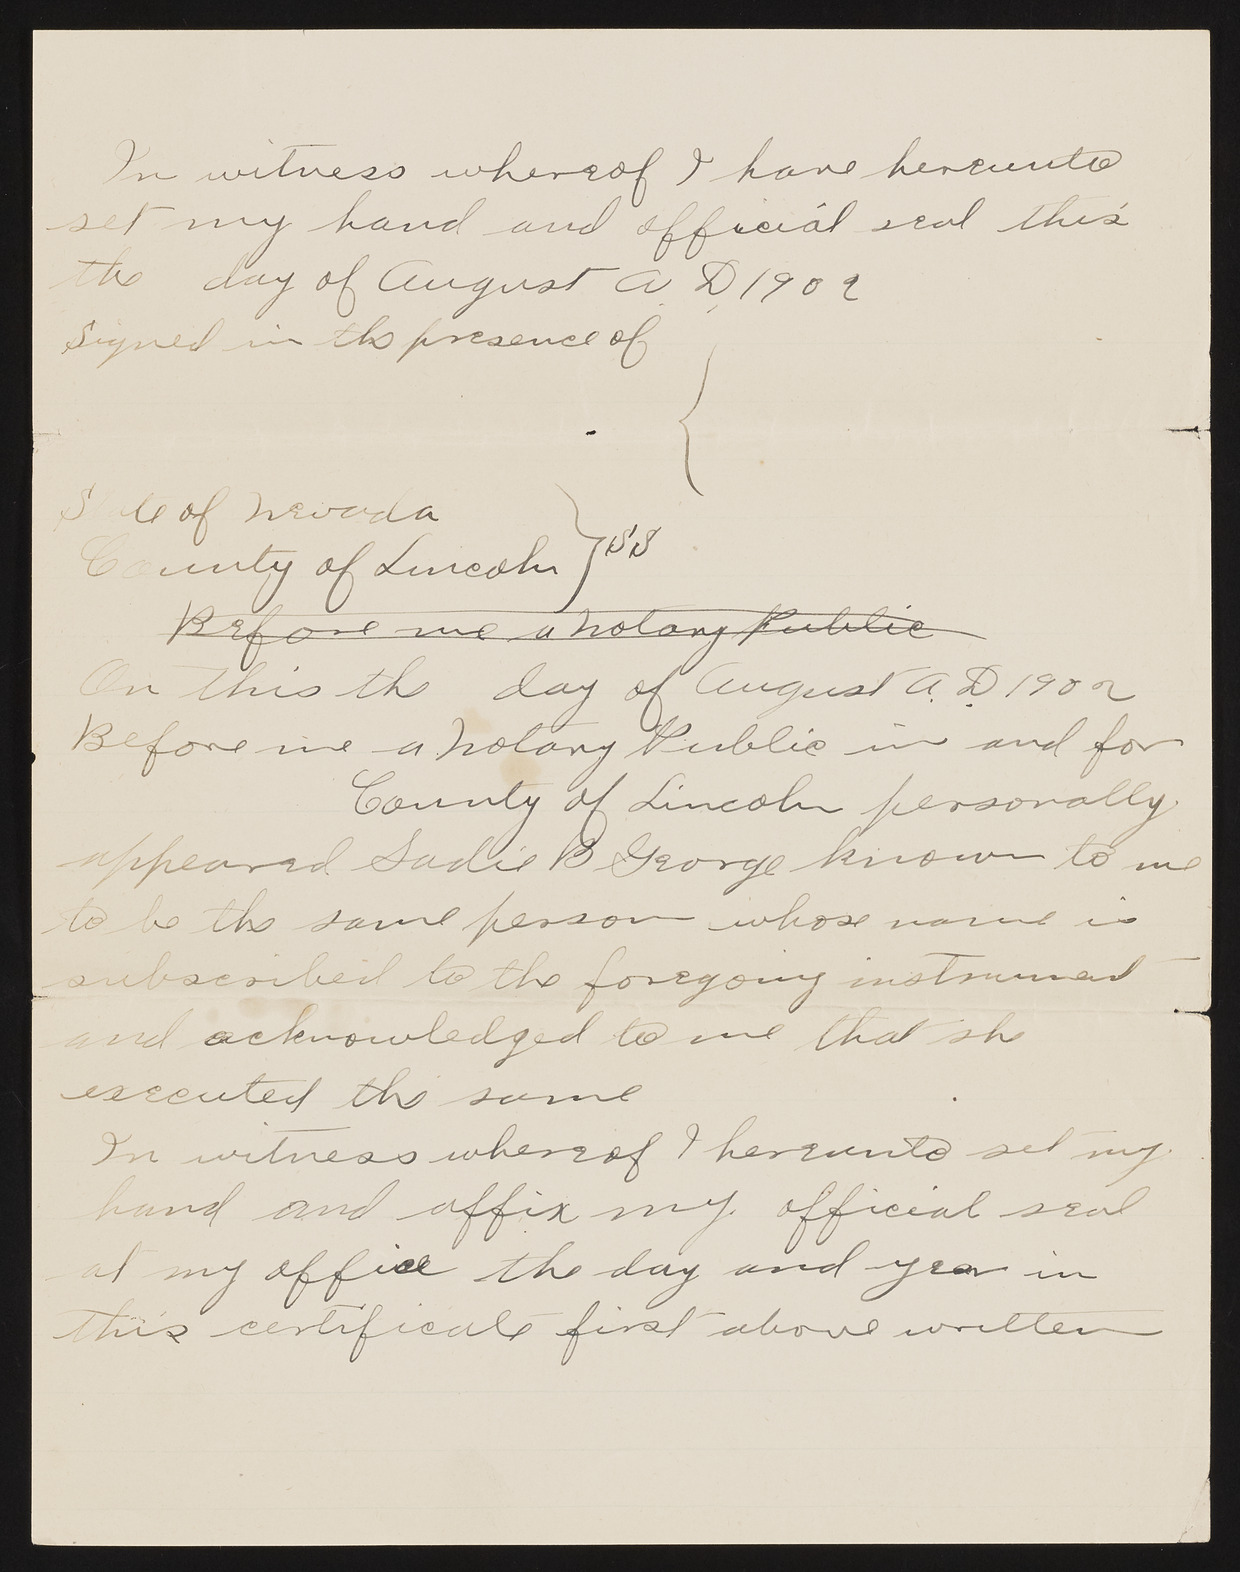 In witness whereof I have hereunto
set my hand and official seal this
the day of August A D 1902
Signed in the presence of
State of Nevada
County of Lincoln } SS
Before me a Notary Public
On this the day of August A. D. 1902
Before me a Notary Public in and for
County of Lincoln personally
appeared Sadie B George known to me
to be the same person whose name is
subscribed to the foregoing instrument
and acknowledged to me that she
executed the same
In witness whereof I hereunto set my
hand and affix my official seal
at my office the day and year in
this certificate first above written